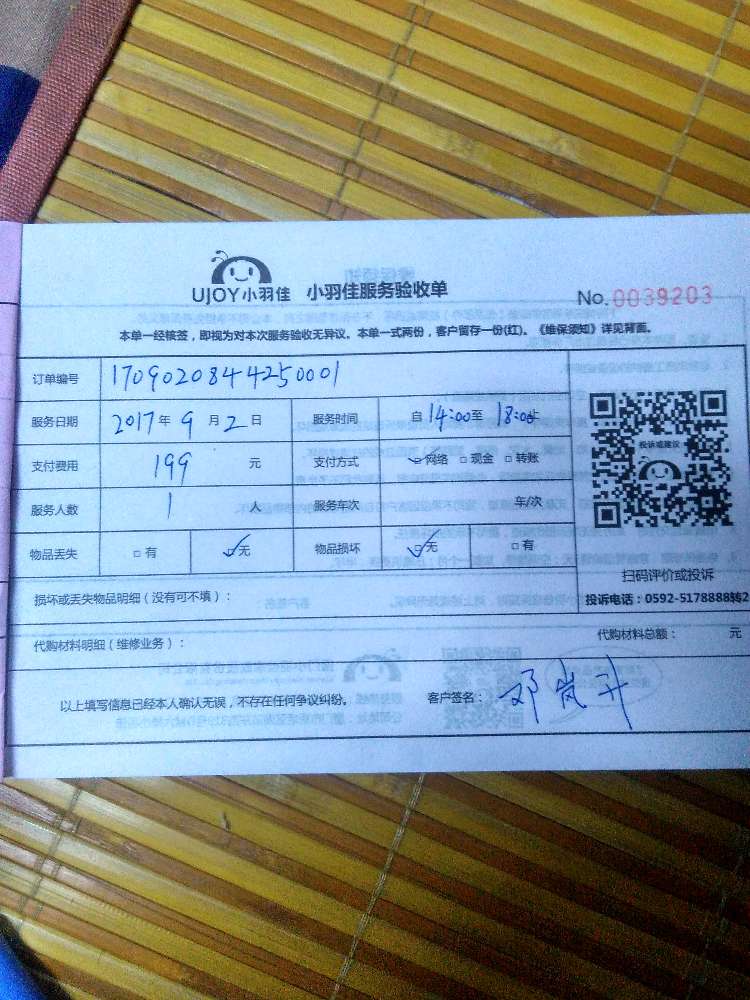 UJOY小羽佳 小羽佳服务验收单
No.0039203
本单一经核签，即视为对本次服务验收无异议。本单一式两份，客户留存一份(红)。《维保须知》详见背面。
订单编号 1709020844250001
服务日期 2017年9月2日 服务时间 自14:00至18:00止
支付费用 199 元 支付方式 ☑网络 □现金 □转账
服务人数 1 人 服务车次 车/次
物品丢失 □有 ☑无 物品损坏 ☑无 □有
投诉或建议
扫码评价或投诉
投诉电话：0592-5178888转2
损坏或丢失物品明细（没有可不填）：
代购材料明细（维修业务）： 代购材料总额： 元
以上填写信息已经本人确认无误，不存在任何争议纠纷。 客户签名：邓岚升